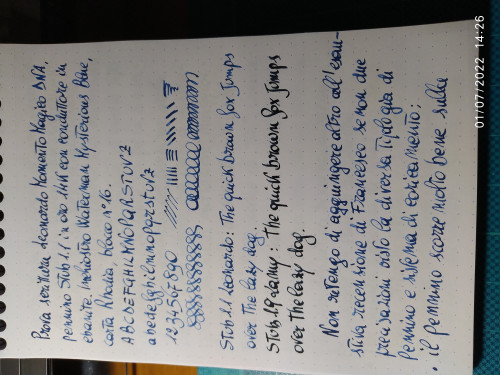 Prova scrittura Leonardo Momento Magico DNA,
pennino Stub 1.1 in oro 14K con conduttore in
ebanite. Inchiostro Waterman Mysterious Blue,
carta Rhodia bloco n° 16.
ABCDEFGHILMNOPQRSTUVZ
abcdefghilmnopqrstuvz
1234567890
Stub 1.1 Leonardo: The quick brown fox jumps
over The lazy dog
Stub 1.9 Lamy: The quick brown fox jumps
over The lazy dog.
Non ritengo di aggiungere altro all'esau-
stiva recensione di Francesco se non due
precisazioni visto la diversa Tipologia di
Pennino e sistema di caricamento:
• il pennino scorre molto bene sulla
01/07/2022 14:26